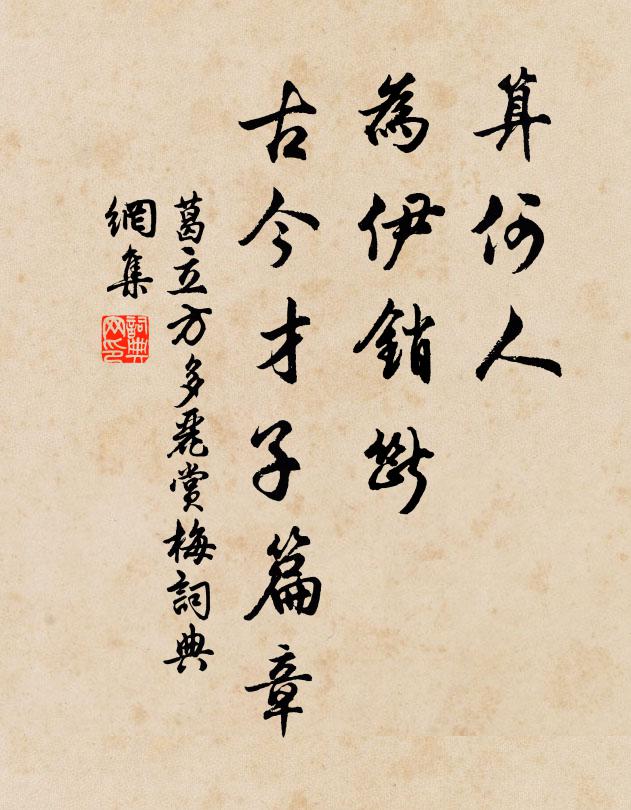 算何人
為伊銷斷
古今才子篇章
葛立方多麗賞梅詞典
網集
詞典
网印